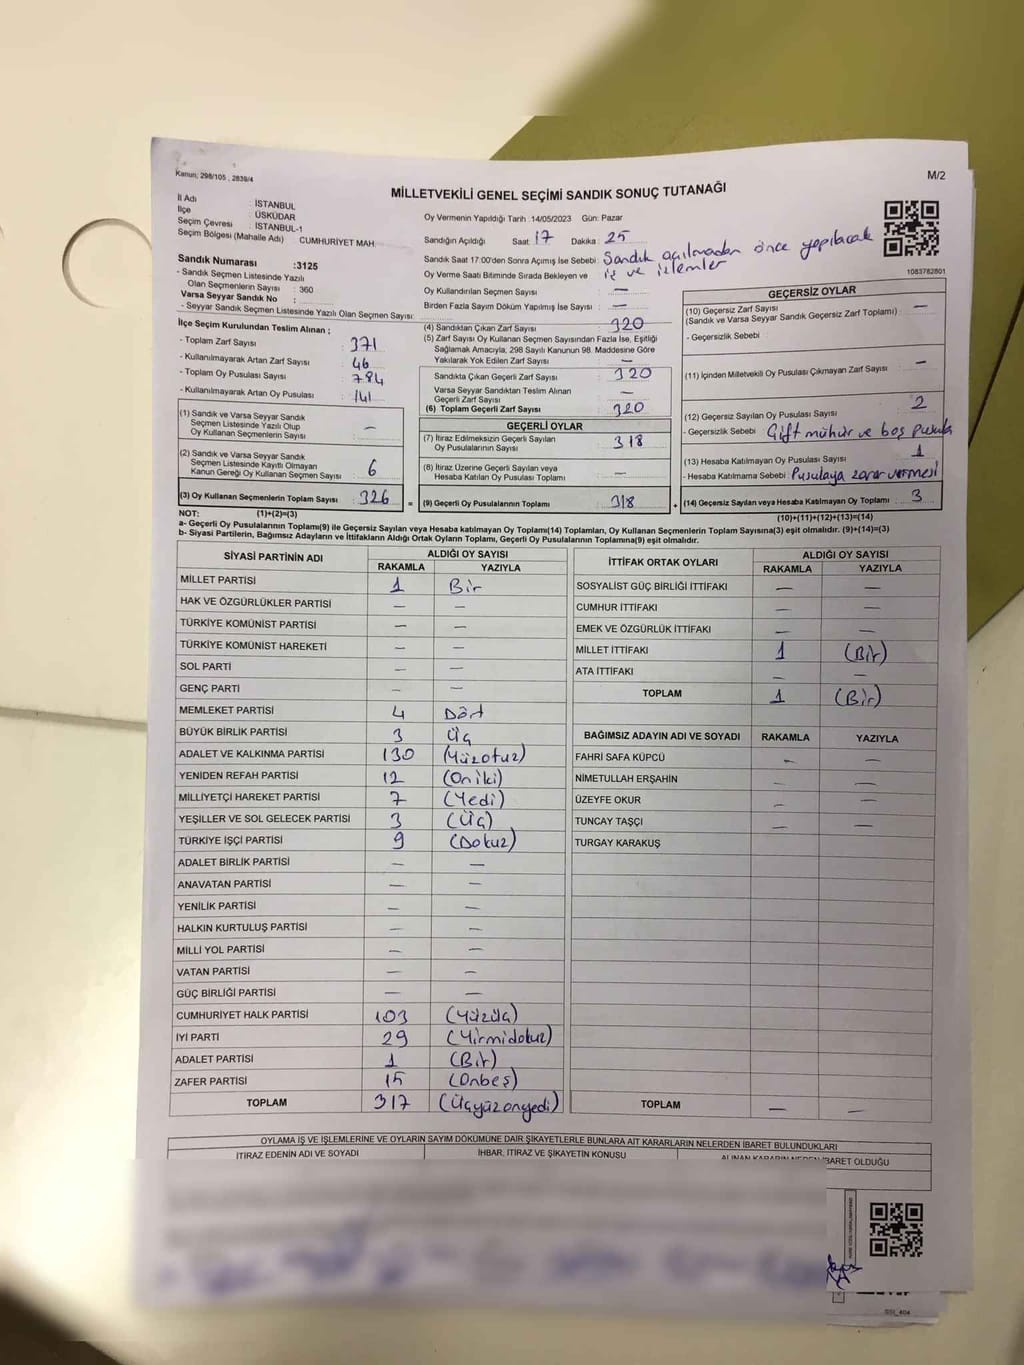 Kanun; 298/105 , 2839/4
M/2
MİLLETVEKİLİ GENEL SEÇİMİ SANDIK SONUÇ TUTANAĞI
İl Adı : İSTANBUL
İlçe : ÜSKÜDAR
Seçim Çevresi : İSTANBUL-1
Seçim Bölgesi (Mahalle Adı) CUMHURİYET MAH.
Sandık Numarası :3125
- Sandık Seçmen Listesinde Yazılı
Olan Seçmenlerin Sayısı : 360
Varsa Seyyar Sandık No :
- Seyyar Sandık Seçmen Listesinde Yazılı Olan Seçmen Sayısı:
Oy Vermenin Yapıldığı Tarih :14/05/2023 Gün: Pazar
Sandığın Açıldığı Saat 17 Dakika : 25
Sandık Saat 17:00'den Sonra Açımış İse Sebebi : Sandık açılmadan önce yapılacak
iş ve işlemler
Oy Verme Saati Bitiminde Sırada Bekleyen ve
Oy Kullandırılan Seçmen Sayısı : —
Birden Fazla Sayım Döküm Yapılmış İse Sayısı : —
1083782801
İlçe Seçim Kurulundan Teslim Alınan ;
- Toplam Zarf Sayısı : 371
- Kullanılmayarak Artan Zarf Sayısı : 46
- Toplam Oy Pusulası Sayısı : 784
- Kullanılmayarak Artan Oy Pusulası : 141
(1) Sandık ve Varsa Seyyar Sandık
Seçmen Listesinde Yazılı Olup
Oy Kullanan Seçmenlerin Sayısı : —
(2) Sandık ve Varsa Seyyar Sandık
Seçmen Listesinde Kayıtlı Olmayan
Kanun Gereği Oy Kullanan Seçmen Sayısı : 6
(3) Oy Kullanan Seçmenlerin Toplam Sayısı : 326
(4) Sandıktan Çıkan Zarf Sayısı : 320
(5) Zarf Sayısı Oy Kullanan Seçmen Sayısından Fazla İse, Eşitliği
Sağlamak Amacıyla, 298 Sayılı Kanunun 98. Maddesine Göre
Yakılarak Yok Edilen Zarf Sayısı : —
Sandıkta Çıkan Geçerli Zarf Sayısı : 320
Varsa Seyyar Sandıktan Teslim Alınan
Geçerli Zarf Sayısı : —
(6) Toplam Geçerli Zarf Sayısı : 320
GEÇERLİ OYLAR
(7) İtiraz Edilmeksizin Geçerli Sayılan
Oy Pusulalarının Sayısı : 318
(8) İtiraz Üzerine Geçerli Sayılan veya
Hesaba Katılan Oy Pusulası Toplamı : —
= (9) Geçerli Oy Pusulalarının Toplamı : 318
GEÇERSİZ OYLAR
(10) Geçersiz Zarf Sayısı : —
(Sandık ve Varsa Seyyar Sandık Geçersiz Zarf Toplamı)
- Geçersizlik Sebebi :
(11) İçinden Milletvekili Oy Pusulası Çıkmayan Zarf Sayısı : —
(12) Geçersiz Sayılan Oy Pusulası Sayısı : 2
- Geçersizlik Sebebi : Çift mühür ve boş pusula
(13) Hesaba Katılmayan Oy Pusulası Sayısı : 1
- Hesaba Katılmama Sebebi : Pusulaya zarar vermesi
+ (14) Geçersiz Sayılan veya Hesaba Katılmayan Oy Toplamı : 3
NOT: (1)+(2)=(3)
(10)+(11)+(12)+(13)=(14)
a- Geçerli Oy Pusulalarının Toplamı(9) ile Geçersiz Sayılan veya Hesaba katılmayan Oy Toplamı(14) Toplamları, Oy Kullanan Seçmenlerin Toplam Sayısına(3) eşit olmalıdır. (9)+(14)=(3)
b- Siyasi Partilerin, Bağımsız Adayların ve İttifakların Aldığı Ortak Oyların Toplamı, Geçerli Oy Pusulalarının Toplamına(9) eşit olmalıdır.
SİYASİ PARTİNİN ADI
ALDIĞI OY SAYISI
RAKAMLA YAZIYLA
MİLLET PARTİSİ 1 Bir
HAK VE ÖZGÜRLÜKLER PARTİSİ — —
TÜRKİYE KOMÜNİST PARTİSİ — —
TÜRKİYE KOMÜNİST HAREKETİ — —
SOL PARTİ — —
GENÇ PARTİ — —
MEMLEKET PARTİSİ 4 Dört
BÜYÜK BİRLİK PARTİSİ 3 Üç
ADALET VE KALKINMA PARTİSİ 130 (Yüzotuz)
YENİDEN REFAH PARTİSİ 12 (Oniki)
MİLLİYETÇİ HAREKET PARTİSİ 7 (Yedi)
YEŞİLLER VE SOL GELECEK PARTİSİ 3 (Üç)
TÜRKİYE İŞÇİ PARTİSİ 9 (Dokuz)
ADALET BİRLİK PARTİSİ — —
ANAVATAN PARTİSİ — —
YENİLİK PARTİSİ — —
HALKIN KURTULUŞ PARTİSİ — —
MİLLİ YOL PARTİSİ — —
VATAN PARTİSİ — —
GÜÇ BİRLİĞİ PARTİSİ — —
CUMHURİYET HALK PARTİSİ 103 (Yüzüç)
İYİ PARTİ 29 (Yirmidokuz)
ADALET PARTİSİ 1 (Bir)
ZAFER PARTİSİ 15 (Onbeş)
TOPLAM 317 (Üçyüzonyedi)
İTTİFAK ORTAK OYLARI
ALDIĞI OY SAYISI
RAKAMLA YAZIYLA
SOSYALİST GÜÇ BİRLİĞİ İTTİFAKI — —
CUMHUR İTTİFAKI — —
EMEK VE ÖZGÜRLÜK İTTİFAKI — —
MİLLET İTTİFAKI 1 (Bir)
ATA İTTİFAKI — —
TOPLAM 1 (Bir)
BAĞIMSIZ ADAYIN ADI VE SOYADI RAKAMLA YAZIYLA
FAHRİ SAFA KÜPCÜ — —
NİMETULLAH ERŞAHİN — —
ÜZEYFE OKUR — —
TUNCAY TAŞÇI — —
TURGAY KARAKUŞ
TOPLAM — —
OYLAMA İŞ VE İŞLEMLERİNE VE OYLARIN SAYIM DÖKÜMÜNE DAİR ŞİKAYETLERLE BUNLARA AİT KARARLARIN NELERDEN İBARET BULUNDUKLARI
İTİRAZ EDENİN ADI VE SOYADI
İHBAR, İTİRAZ VE ŞİKAYETİN KONUSU
ALINAN KARARIN NEDEN İBARET OLDUĞU
GSI_404